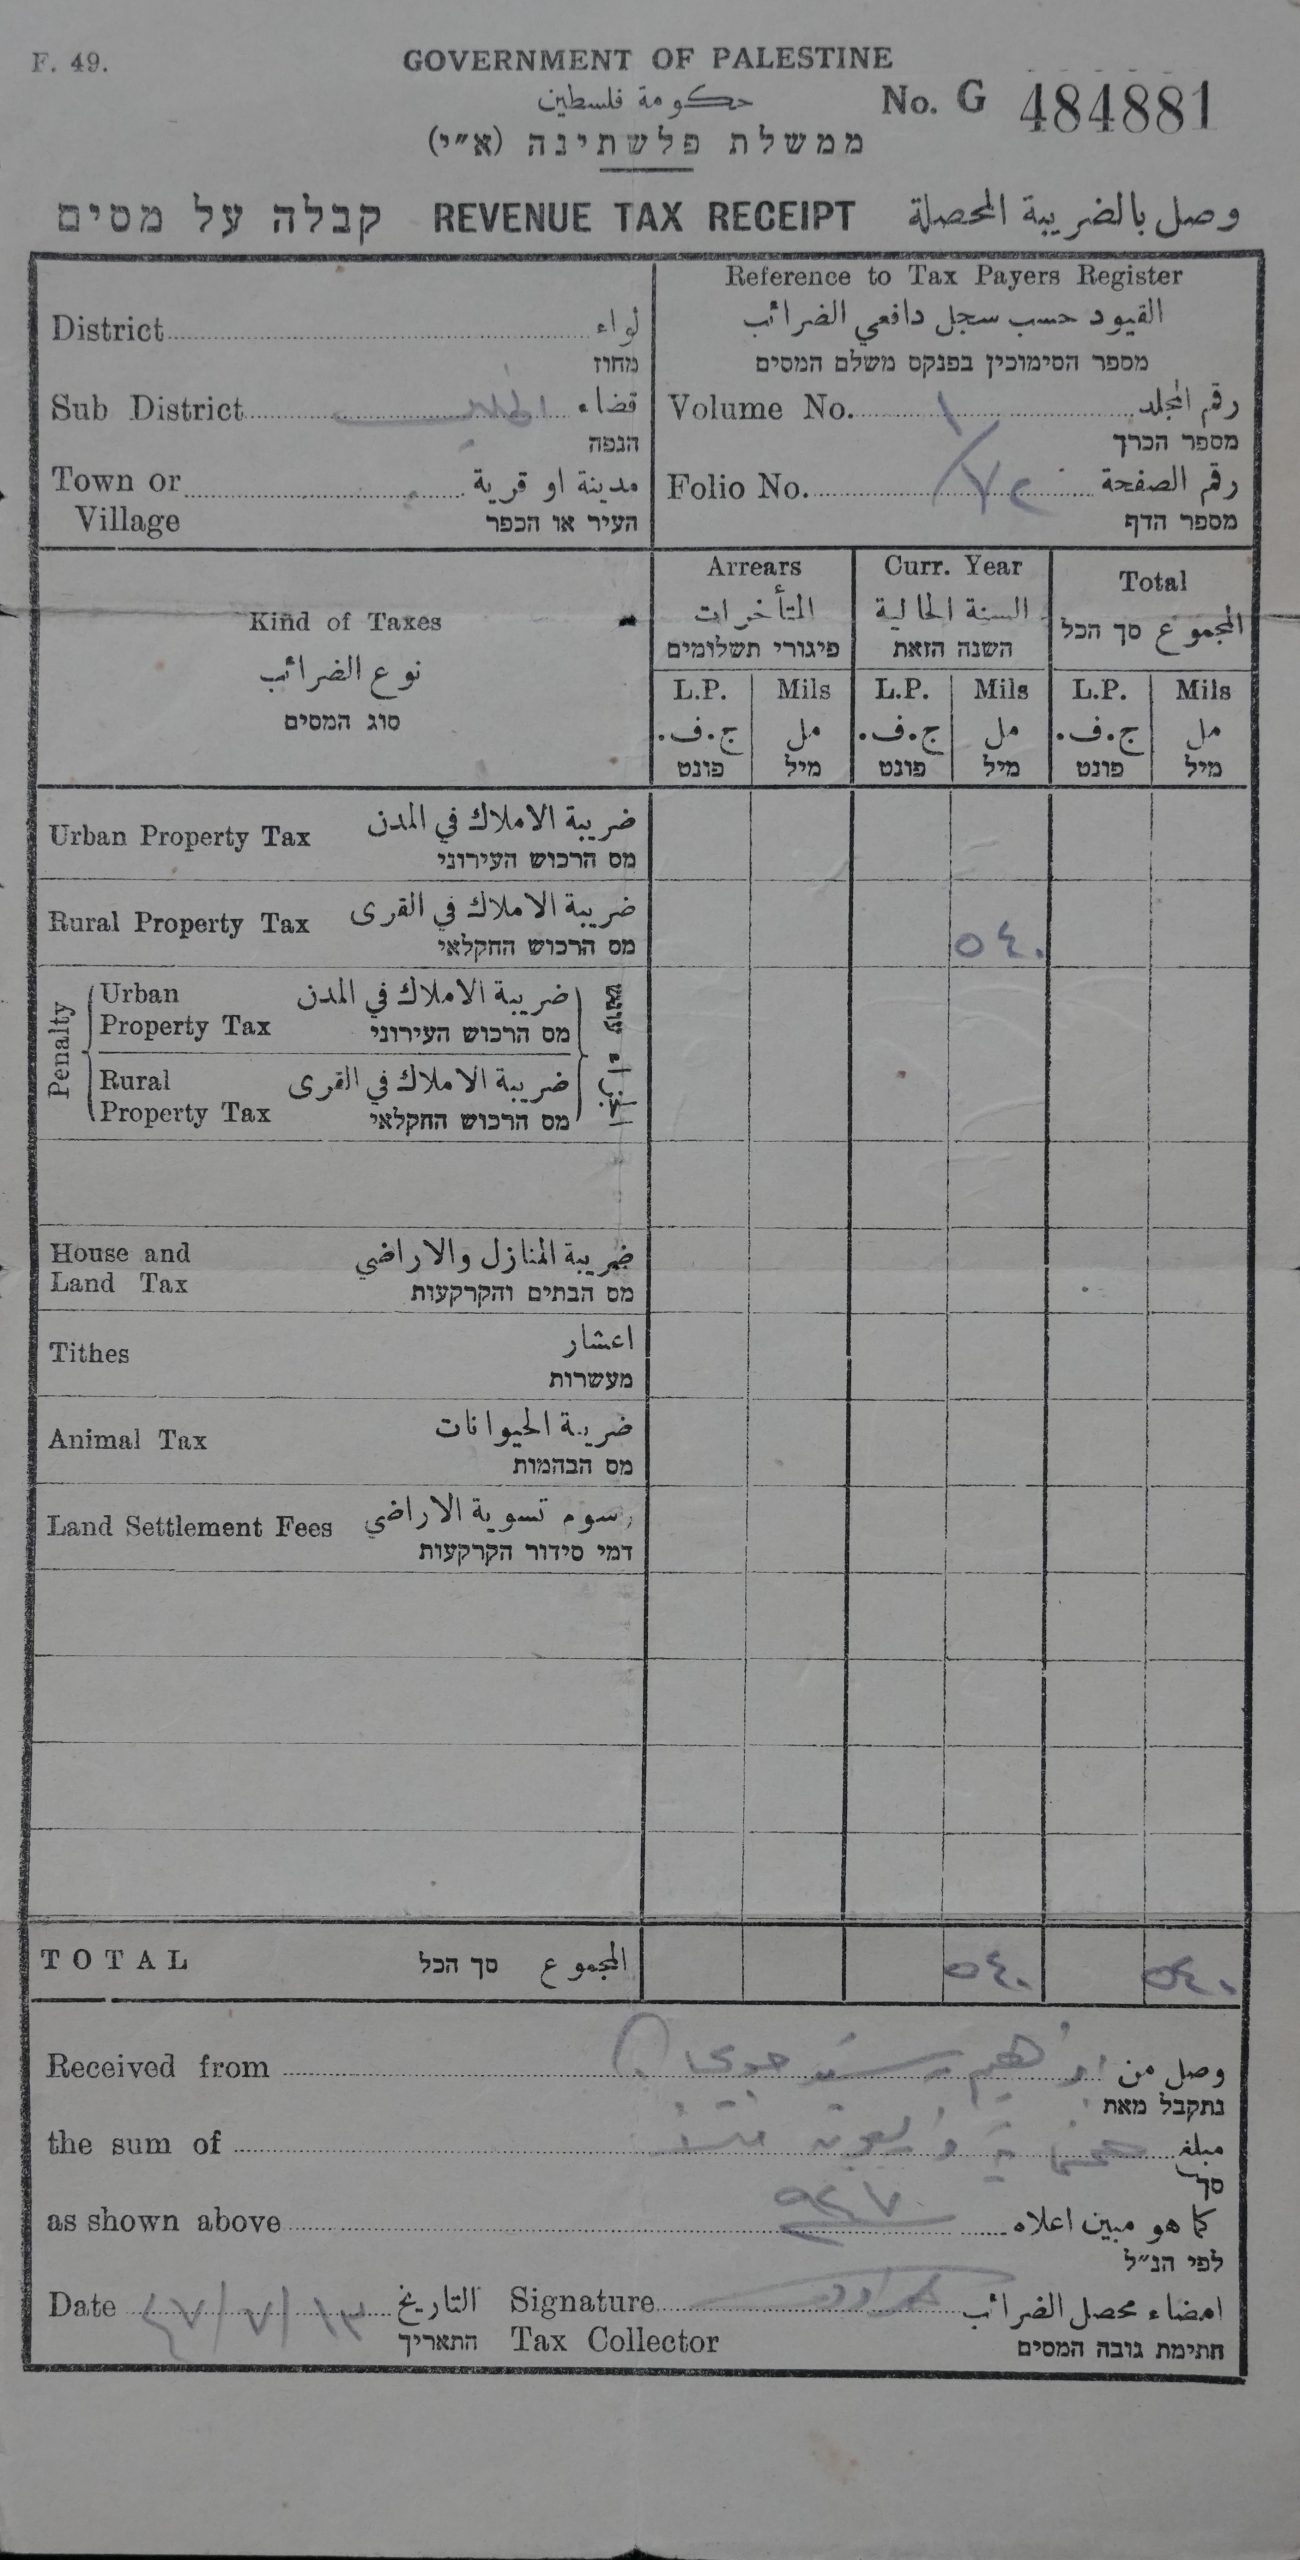 F. 49.
GOVERNMENT OF PALESTINE
حكومة فلسطين
No. G 484881
ממשלת פלשתינה (א״י)
קבלה על מסים REVENUE TAX RECEIPT وصل بالضريبة المحصلة
District لواء
מחוז
Sub District الخليل قضاء
הנפה
Town or مدينة او قرية
Village העיר או הכפר
Reference to Tax Payers Register
القيود حسب سجل دافعي الضرائب
מספר הסימוכין בפנקס משלם המסים
Volume No. ١ رقم المجلد
מספר הכרך
Folio No. رقم الصفحة
מספר הדף
Kind of Taxes
نوع الضرائب
סוג המסים
Arrears
المتأخرات
פיגורי תשלומים
Curr. Year
السنة الحالية
השנה הזאת
Total
المجموع סך הכל
L.P. Mils L.P. Mils L.P. Mils
ج.ف. مل ج.ف. مل ج.ف. مل
פונט מיל פונט מיל פונט מיל
Urban Property Tax ضريبة الاملاك في المدن
מס הרכוש העירוני
Rural Property Tax ضريبة الاملاك في القرى
מס הרכוש החקלאי
٥٤٠
Penalty
Urban ضريبة الاملاك في المدن
Property Tax מס הרכוש העירוני
Rural ضريبة الاملاك في القرى
Property Tax מס הרכוש החקלאי
House and ضريبة المنازل والاراضي
Land Tax מס הבתים והקרקעות
Tithes اعشار
מעשרות
Animal Tax ضريبة الحيوانات
מס הבהמות
Land Settlement Fees رسوم تسوية الاراضي
דמי סידור הקרקעות
TOTAL סך הכל المجموع ٥٤٠ ٥٤٠
Received from ابراهيم وصل من
נתקבל מאת
the sum of مبلغ
סך
as shown above كما هو مبين اعلاه
לפי הנ״ל
Date ١٣/٧/٤٧ التاريخ Signature امضاء محصل الضرائب
התאריך Tax Collector חתימת גובה המסים